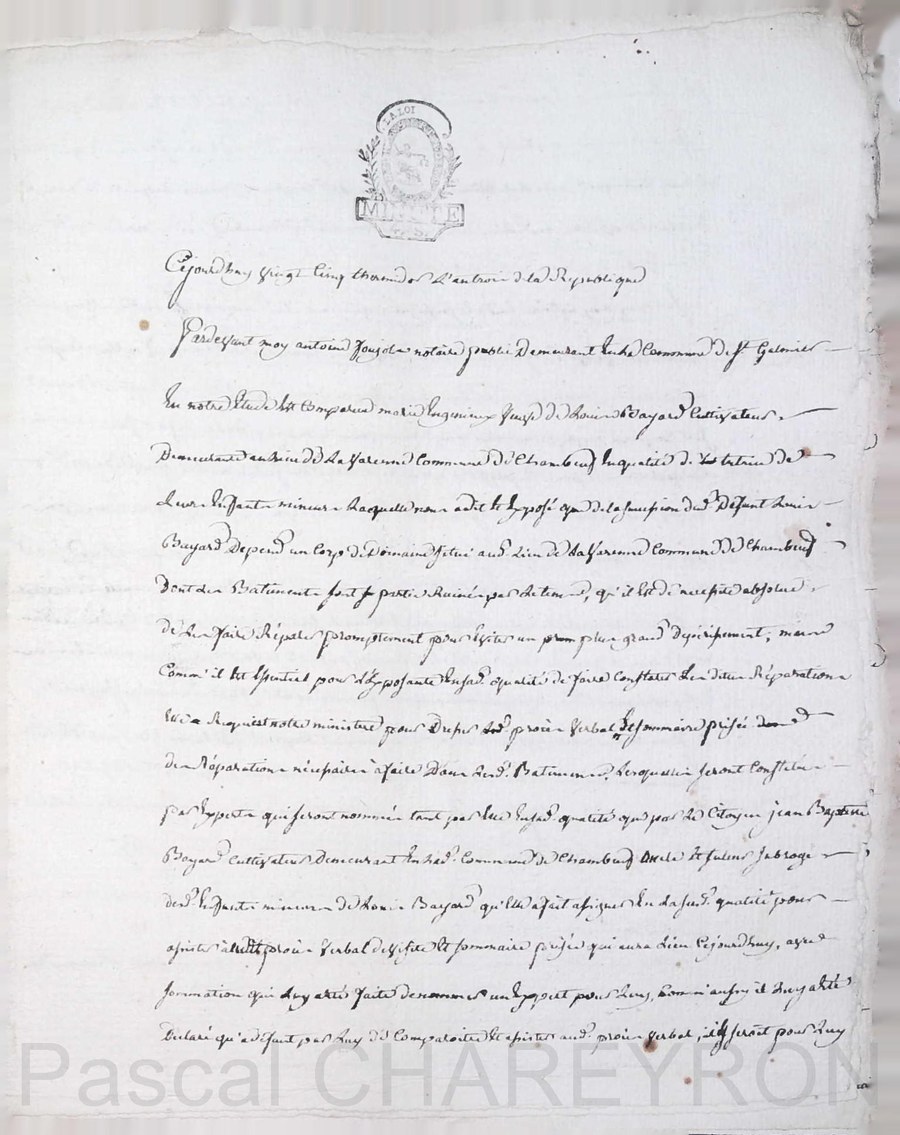 LA LOI
MINUTE
Cejourdhuy vingt cinq thermidor L'an trois de la Republique
Pardevant moy antoine notaire public Demeurant En la Commune de St. Galmier
En notre Etude Est Comparue marie veuve de Louis Bayard Cultivateur
Demeurante au Lieu de La Varenne Commune de Chambeuf En qualité de tutrice de
Leurs Enfants mineurs Laquelle nous a dit Et Exposé que de la succession dud. Defunt Louis
Bayard Depend un Corps de Domaine situé aud. Lieu de La Varenne Commune de Chambeuf
Dont Les Batiments sont partie Ruinés par Le tems, qu'il Est de necessité absolue
de Les faire Réparer promptement pour Eviter un plus grand deperissement, mais
Comm'il Est Essentiel pour L'Exposante En sad. qualité de faire Constater Les dites Réparations
Elle a Requis notre ministere pour Dresser proces Verbal Et sommaire prisée
des Réparations nécessaires à faire Dans Lesd. Batiments, Lesquelles seront Constatées
par Experts qui seront nommés tant par Elle En sad. qualité que par Le Citoyen jean Baptiste
Bayard Cultivateur Demeurant En lad. Commune de Chambeuf oncle Et tuteur subrogé
desd. Enfants mineurs de Louis Bayard qu'Elle a fait assigner En sa susd. qualité pour
assister proces Verbal de visite Et sommaire prisée qui aura Lieu Cejourdhuy, avec
sommation qui Luy a été faite de nommer un Expert pour Luy, Comm'aussy il Luy a été
Declaré qu'a defaut par Luy de Comparoitre Et assister aud. proces Verbal, il seroit pour Luy
Pascal CHAREYRON